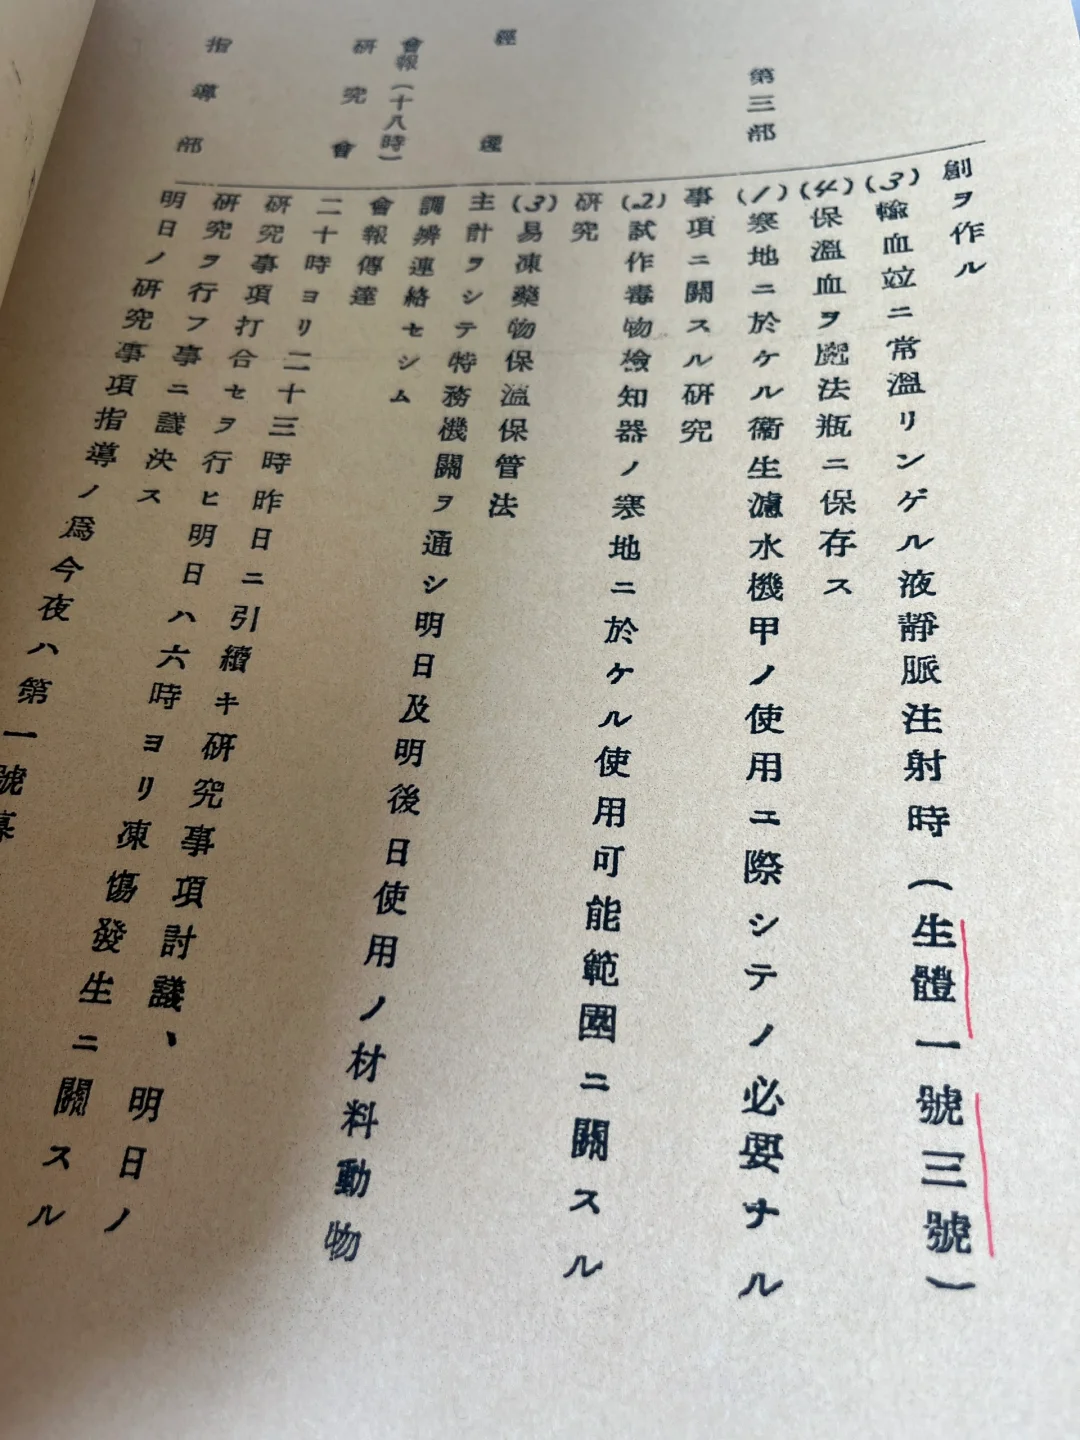 創ヲ作ル
(3)輸血竝ニ常溫リンゲル液靜脈注射時(生體一號三號)
(4)保溫血ヲ魔法瓶ニ保存ス
第三部
(1)寒地ニ於ケル衞生濾水機甲ノ使用ニ際シテノ必要ナル
事項ニ關スル硏究
(2)試作毒物檢知器ノ寒地ニ於ケル使用可能範圍ニ關スル
硏究
(3)易凍藥物保溫保管法
經理
主計ヲシテ特務機關ヲ通シ明日及明後日使用ノ材料動物
調辨連絡セシム
會報(十八時)
會報傳達
硏究會
二十時ヨリ二十三時昨日ニ引續キ硏究事項討議、明日ノ
硏究事項打合セヲ行ヒ明日ハ六時ヨリ凍傷發生ニ關スル
硏究ヲ行フ事ニ議決ス
指導部
明日ノ硏究事項指導ノ爲今夜ハ第一號幕